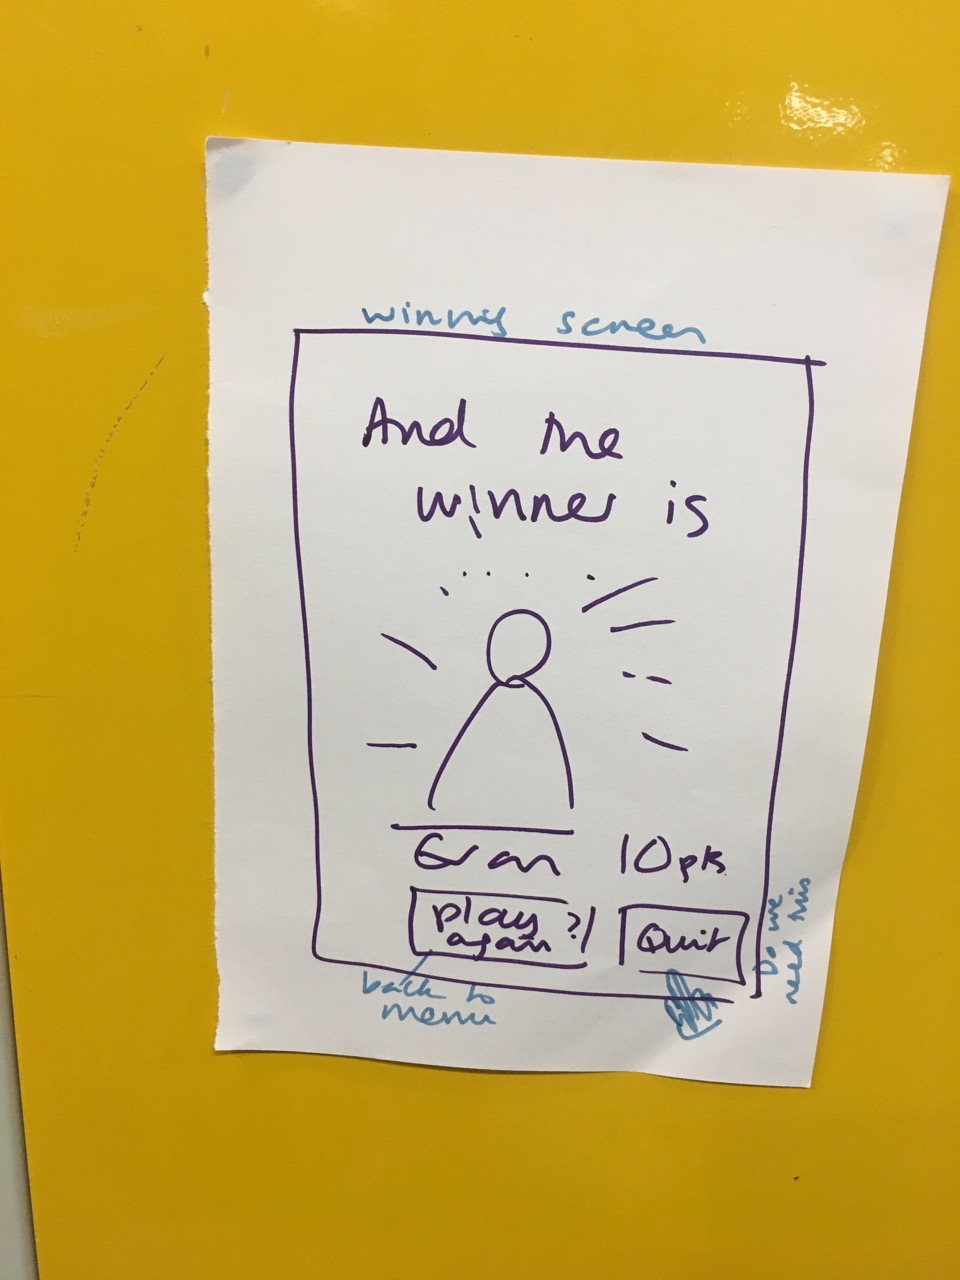 winning screen
And the
winner is
Evan 10pts
Play
again ?
Quit
back to
menu
Do we
need this